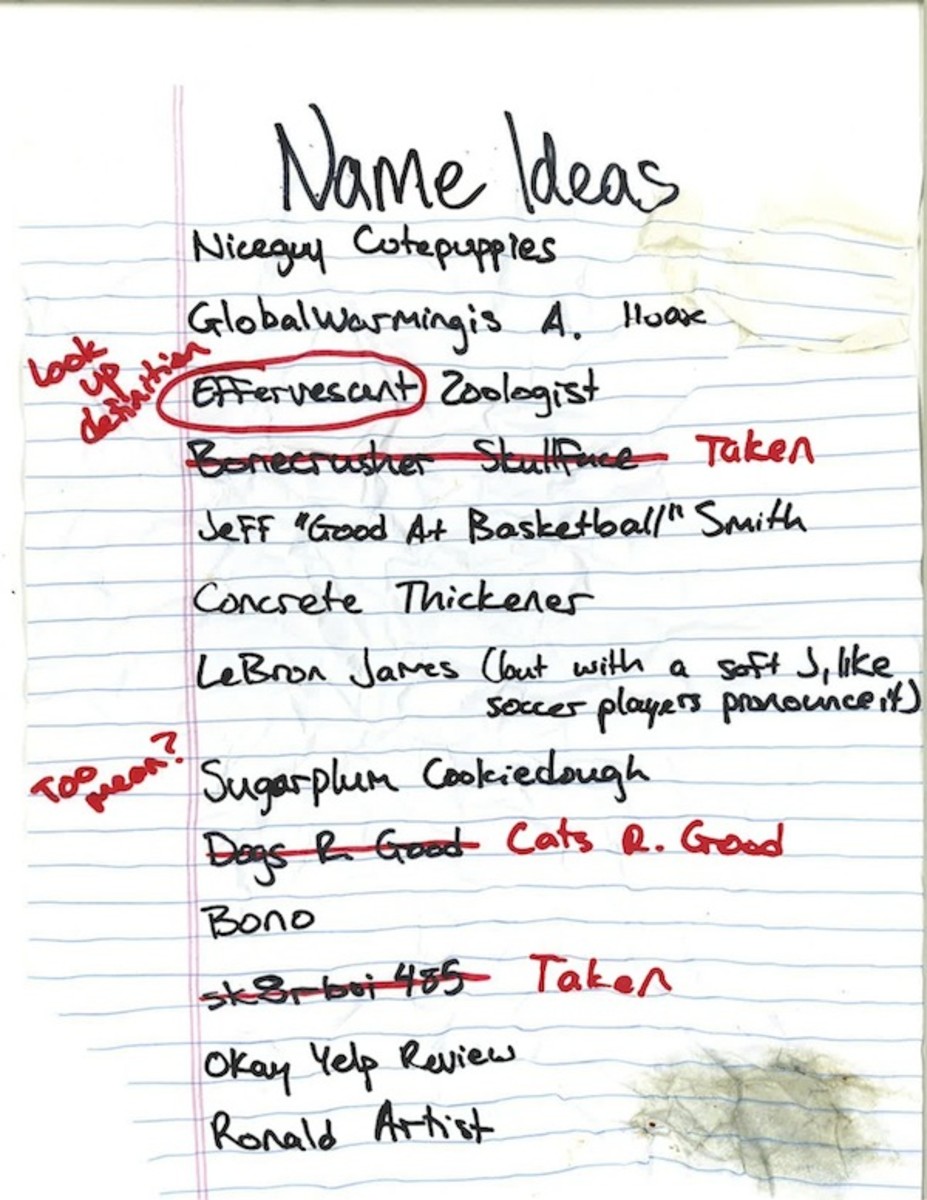 Name Ideas
Niceguy Cutepuppies
GlobalWarmingis A. Hoax
Look
up
definition
Effervescant Zoologist
Bonecrusher Skullface Taken
Jeff "Good At Basketball" Smith
Concrete Thickener
LeBron James (but with a soft J, like
soccer players pronounce it)
Too
mean?
Sugarplum Cookiedough
Dogs R. Good Cats R. Good
Bono
sk8r boi 485 Taken
Okay Yelp Review
Ronald Artist